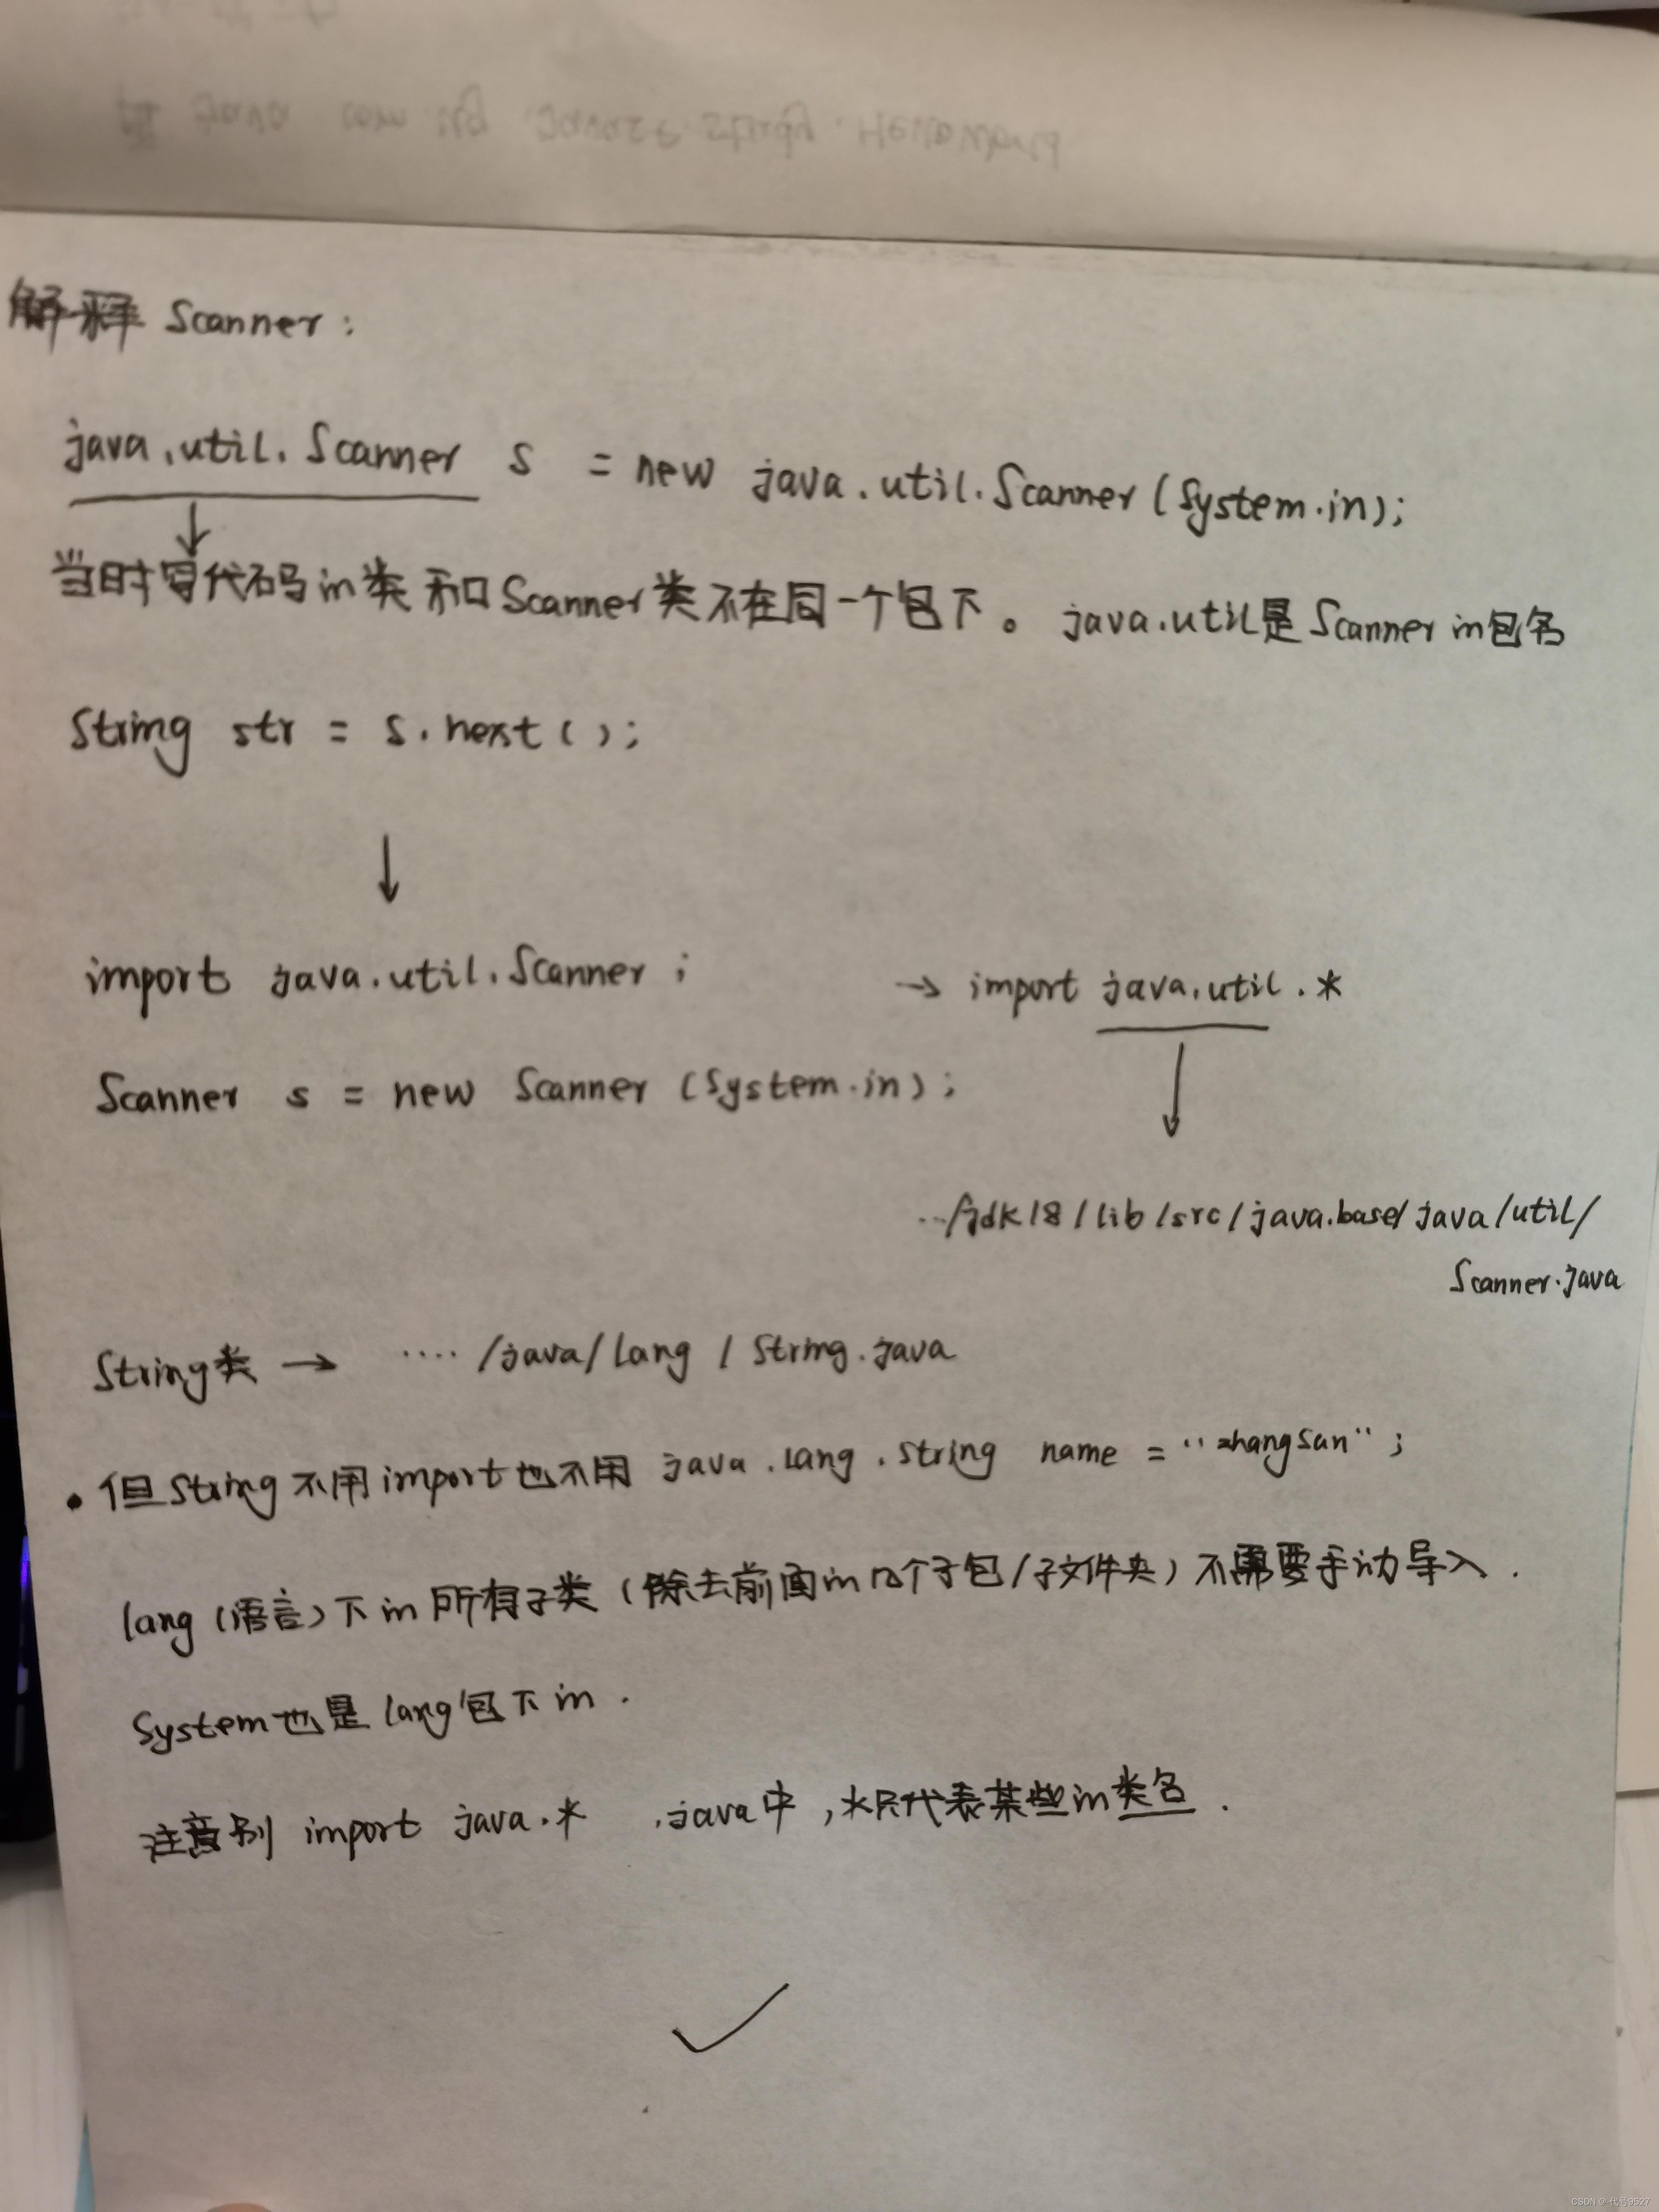 解释 Scanner:
java.util.Scanner s = new java.util.Scanner(System.in);
当时写代码in类和Scanner类不在同一个包下。java.util是Scanner in包名
String str = s.next();
import java.util.Scanner; → import java.util.*
Scanner s = new Scanner(System.in);
../jdk18/lib/src/java.base/java/util/
Scanner.java
String类 → ..../java/lang/String.java
• 但String不用import也不用 java.lang.String name = "zhangsan";
lang(语言)下in所有子类(除去前面in几个子包/子文件夹)不需要手动导入.
System也是lang包下in.
注意别 import java.* .java中,*只代表某些in类名.
CSDN @代号9527